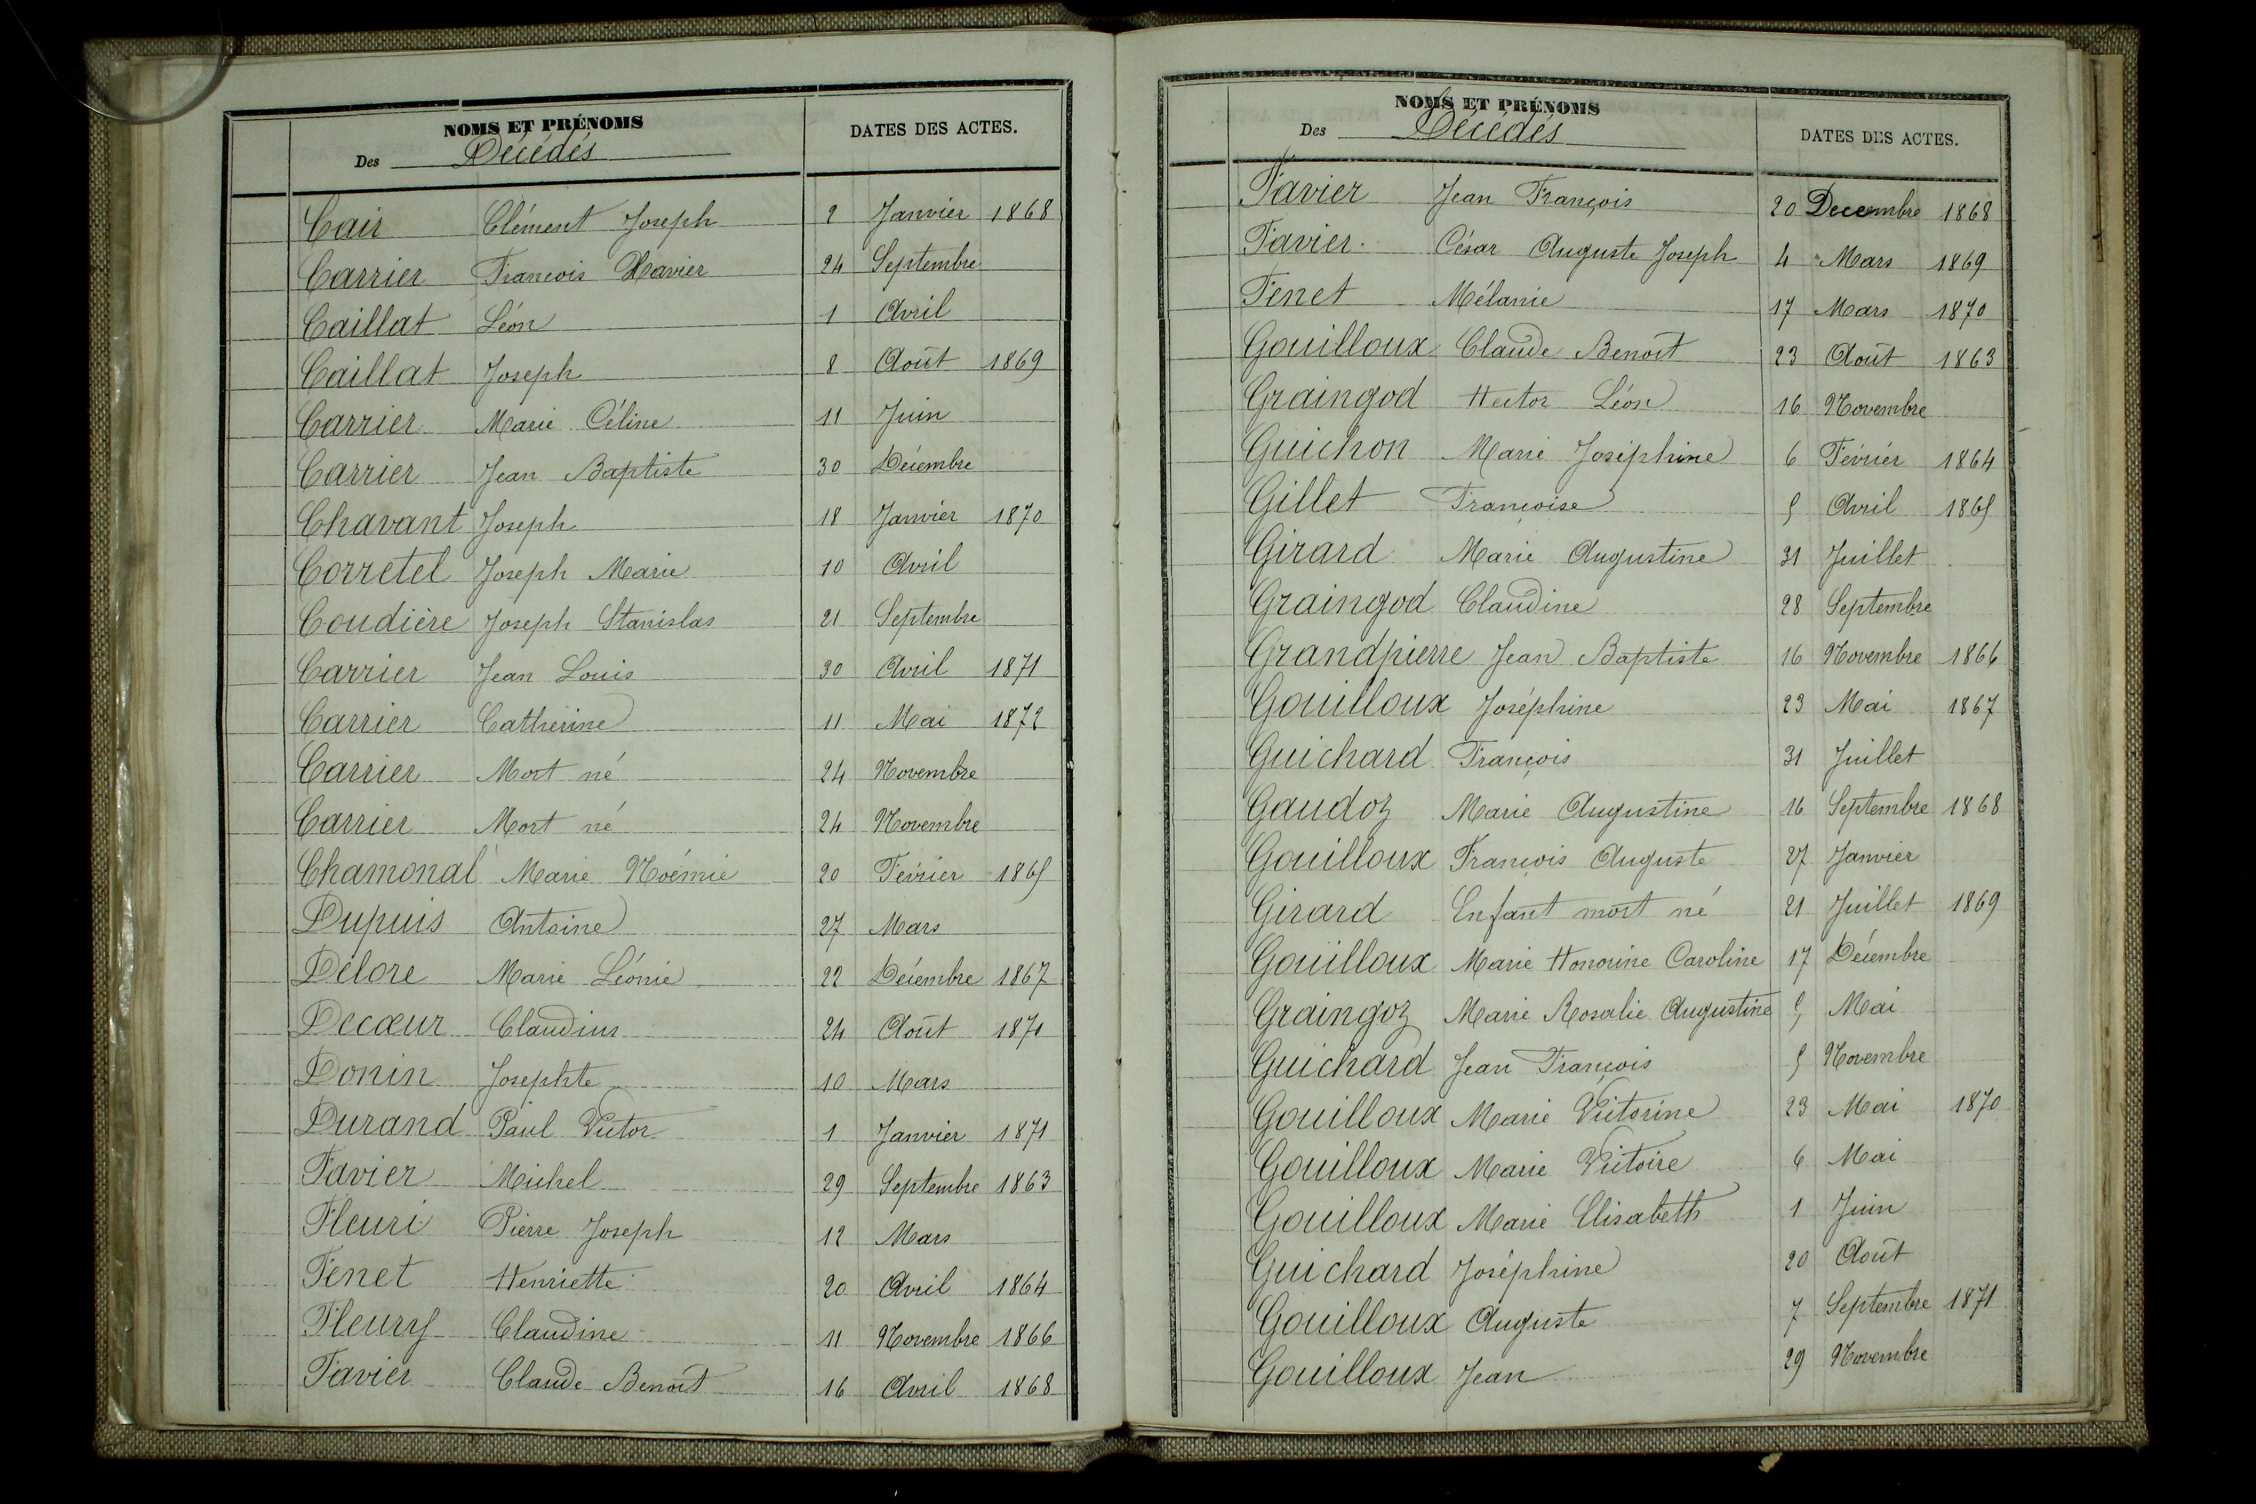 NOMS ET PRÉNOMS
Des Décédés
DATES DES ACTES.
Cair Clément Joseph 2 Janvier 1868
Carrier François Xavier 24 Septembre
Caillat Léon 1 Avril
Caillat Joseph 8 Août 1869
Carrier Marie Céline 11 Juin
Carrier Jean Baptiste 30 Décembre
Chavant Joseph 18 Janvier 1870
Corretel Joseph Marie 10 Avril
Coudière Joseph Stanislas 21 Septembre
Carrier Jean Louis 30 Avril 1871
Carrier Catherine 11 Mai 1872
Carrier Mort né 24 Novembre
Carrier Mort né 24 Novembre
Chamonal Marie Noémie 20 Février 1865
Dupuis Antoine 27 Mars
Délore Marie Léonie 22 Décembre 1867
Decœur Claudius 24 Août 1870
Donin Josephte 10 Mars
Durand Paul Victor 1 Janvier 1871
Favier Michel 29 Septembre 1863
Fleuri Pierre Joseph 12 Mars
Fenet Henriette 20 Avril 1864
Fleury Claudine 11 Novembre 1866
Favier Claude Benoît 16 Avril 1868
NOMS ET PRÉNOMS
Des Décédés
DATES DES ACTES.
Favier Jean François 20 Decembre 1868
Favier. César Auguste Joseph 4 Mars 1869
Fenet Mélanie 17 Mars 1870
Gouilloux Claude Benoît 23 Août 1863
Graingod Hector Léon 16 Novembre
Guichon Marie Joséphine 6 Février 1864
Gillet Françoise 5 Avril 1865
Girard Marie Augustine 31 Juillet
Graingod Claudine 28 Septembre
Grandpierre Jean Baptiste 16 Novembre 1866
Gouilloux Joséphine 23 Mai 1867
Guichard François 31 Juillet
Gaudoz Marie Augustine 16 Septembre 1868
Gouilloux François Auguste 27 Janvier
Girard Enfant mort né 21 Juillet 1869
Gouilloux Marie Honorine Caroline 17 Décembre
Graingoz Marie Rosalie Augustine 5 Mai
Guichard Jean François 5 Novembre
Gouilloux Marie Victorine 23 Mai 1870
Gouilloux Marie Victoire 6 Mai
Gouilloux Marie Elisabeth 1 Juin
Guichard Joséphine 20 Août
Gouilloux Auguste 7 Septembre 1871
Gouilloux Jean 29 Novembre